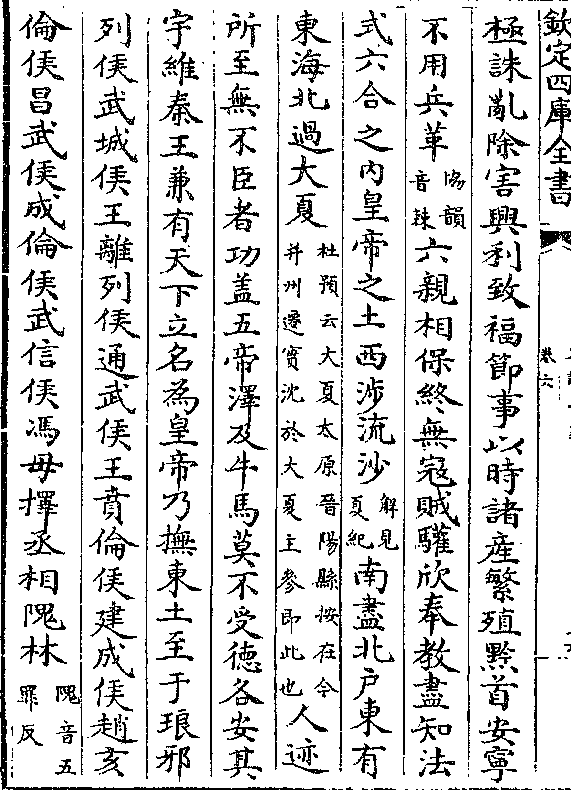 欽定四庫全書
卷六
極誅亂除害興利致福節事以時諸産繁殖黔首安寧
不用兵革協韻音棘六親相保終無寇賊驩欣奉教盡知法
式六合之内皇帝之土西涉流沙解見夏紀南盡北户東有
東海北過大夏杜預云大夏太原晉陽縣按在今并州遷實沈於大夏主參即此也人迹
所至無不臣者功蓋五帝澤及牛馬莫不受德各安其
宇維秦王兼有天下立名為皇帝乃撫東土至于琅邪
列侯武城侯王離列侯通武侯王賁倫侯建成侯趙亥
倫侯昌武侯成倫侯武信侯馮毋擇丞相隗林隗音五罪反